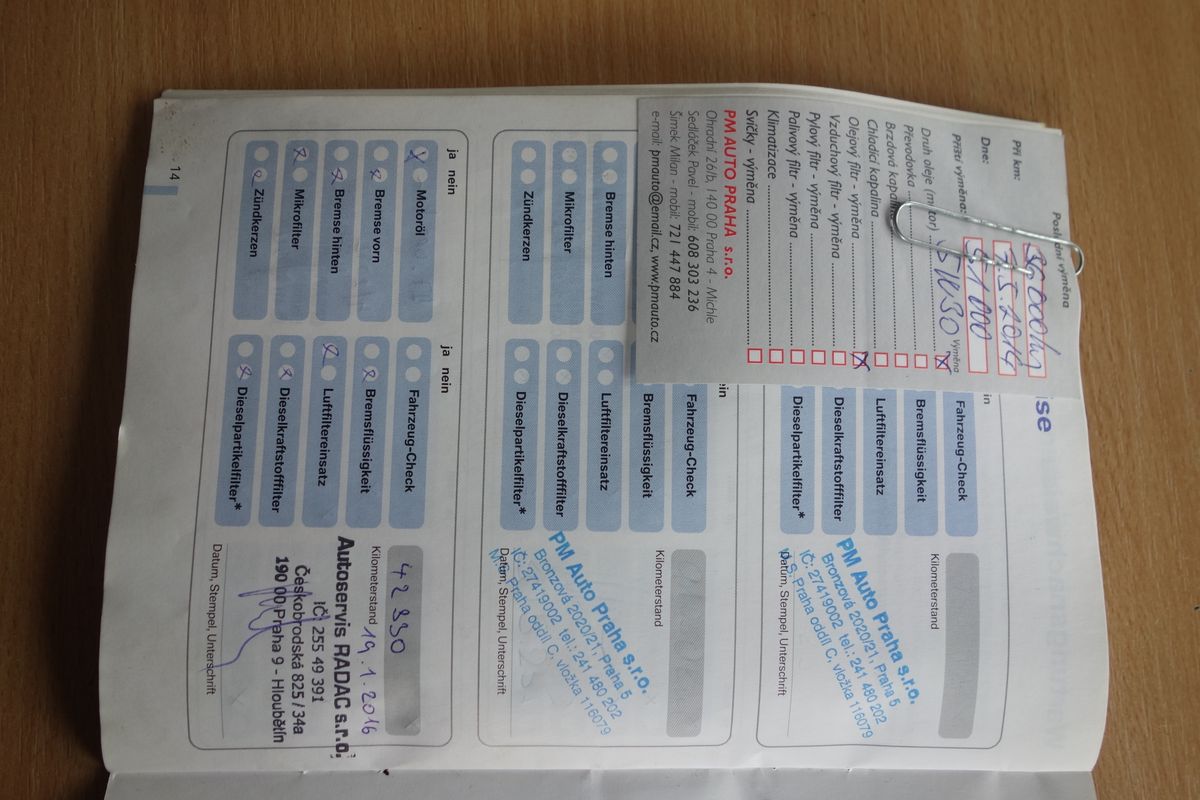 ise
Poslední výměna
Při km:
Dne: 7.5.2014
Příští výměna: 51000
Výměna
Druh oleje (motor) 5W30 X
Převodovka
Brzdová kapalina
Chladící kapalina
Olejový filtr - výměna X
Vzduchový filtr - výměna
Pylový filtr - výměna
Palivový filtr - výměna
Klimatizace
Svíčky - výměna
PM AUTO PRAHA s.r.o.
Ohradní 26/b, 140 00 Praha 4 - Michle
Sedláček Pavel - mobil: 608 303 236
Šimek Milan - mobil: 721 447 884
e-mail: pmauto@email.cz, www.pmauto.cz
in
Fahrzeug-Check
Bremsflüssigkeit
Luftfiltereinsatz
Dieselkraftstofffilter
Dieselpartikelfilter*
Kilometerstand
PM Auto Praha s.r.o.
Bronzová 2020/21, Praha 5
IČ: 27419002 tel.: 241 480 202
M.S. Praha oddíl C, vložka 116079
Datum, Stempel, Unterschrift
Bremse hinten
Mikrofilter
Zündkerzen
ein
Fahrzeug-Check
Bremsflüssigkeit
Luftfiltereinsatz
Dieselkraftstofffilter
Dieselpartikelfilter*
Kilometerstand
PM Auto Praha s.r.o.
Bronzová 2020/21, Praha 5
IČ: 27419002 tel.: 241 480 202
M.S. Praha oddíl C, vložka 116079
Datum, Stempel, Unterschrift
ja nein
Motoröl
Bremse vorn
Bremse hinten
Mikrofilter
Zündkerzen
ja nein
Fahrzeug-Check
Bremsflüssigkeit
Luftfiltereinsatz
Dieselkraftstofffilter
Dieselpartikelfilter*
42330
Kilometerstand 19.1.2016
Autoservis RADAC s.r.o.
IČ: 255 49 391
Českobrodská 825/34a
190 00 Praha 9 - Hloubětín
Datum, Stempel, Unterschrift
14